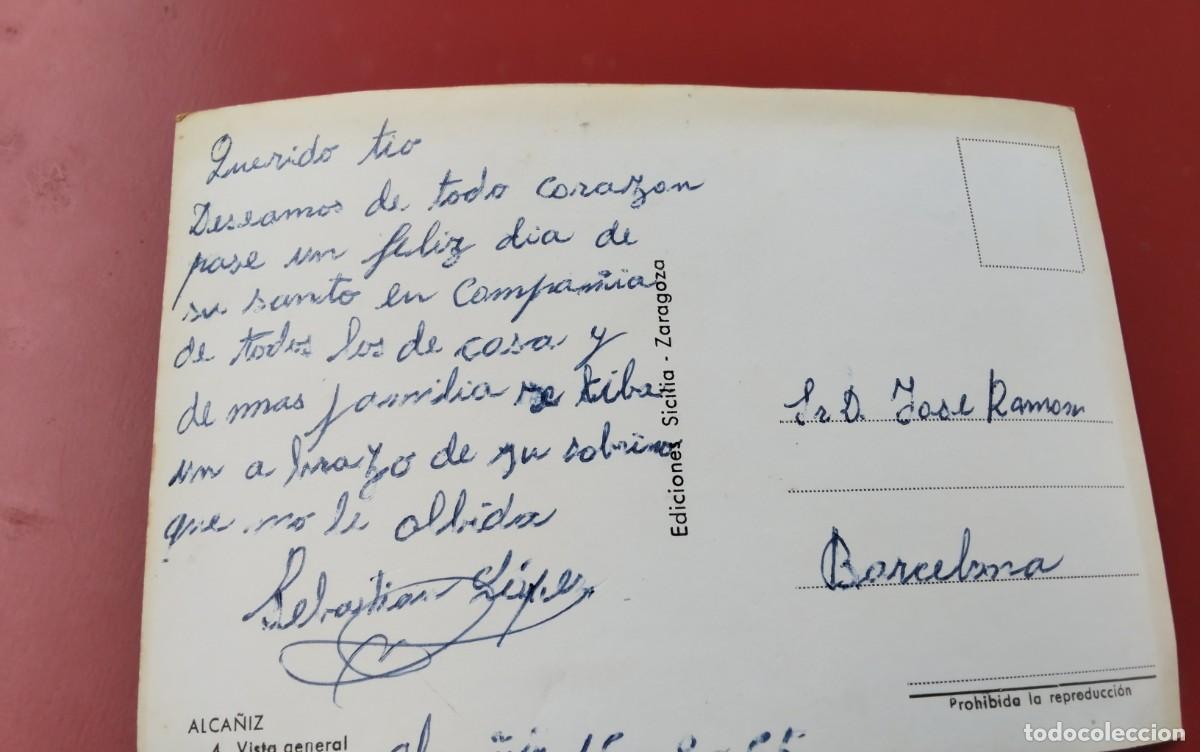 Querido tio
Deseamos de todo corazon
pase un feliz dia de
su santo en Compañia
de todos los de casa y
de mas familia reciba
un abrazo de su sobrino
que no le olbida
Sebastian López
ALCAÑIZ
4 Vista general
Ediciones Sicilia - Zaragoza
Sr D. Jose Ramon
Barcelona
Prohibida la reproducción
todocoleccion